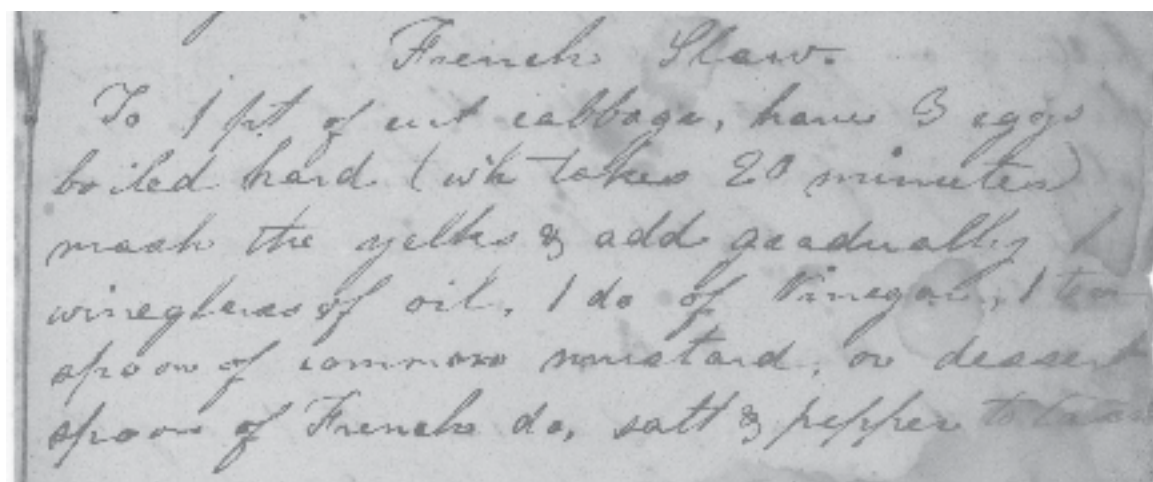 French Slaw.
To 1 pt of cut cabbage, have 3 eggs
boiled hard (wh takes 20 minutes)
mash the yelks & add gradually 1
wineglass of oil, 1 do of Vinegar, 1 tea
spoon of common mustard, or dessert
spoon of French do, salt & pepper to taste